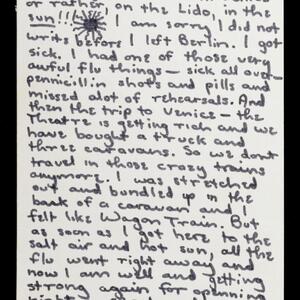 or rather, on the Lido, in the
sun!!! I am sorry I did not
write before I left Berlin. I got
sick. I had one of those very
awful flu things – sick all over –
pennicillin shots and pills and
missed alot of rehearsals. And
then the trip to Venice – the
Theatre is getting rich and we
have bought a truck and
three caravans. So we don't
travel in those crazy trains
anymore. I was stretched
out and bundled up in the
back of a caravan and I
felt like Wagon Train. But
as soon as I got here to the
salt air and hot sun, all the
flu went right away and
now I am well and getting
strong again for opening